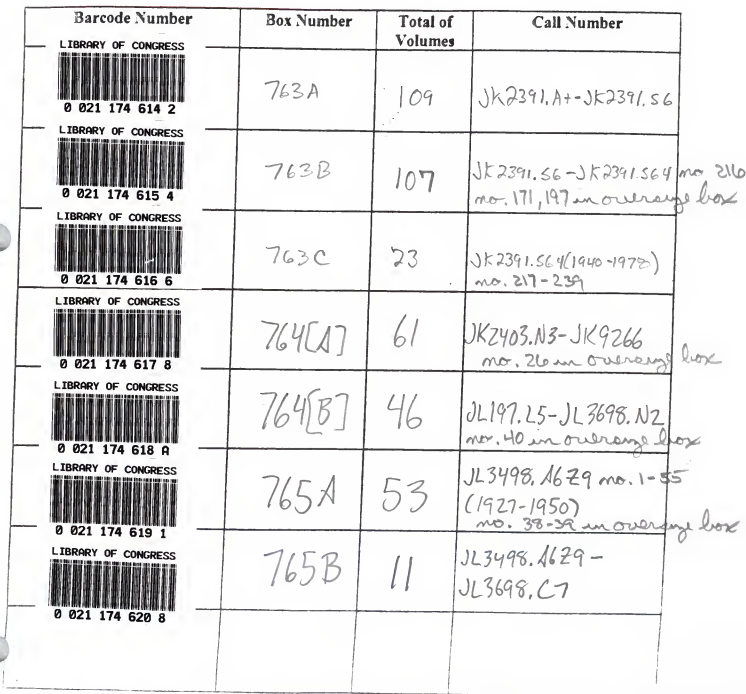 Barcode Number Box Number Total of Volumes Call Number
LIBRARY OF CONGRESS
0 021 174 614 2
763A
109
JK2391.A+-JK2391.S6
LIBRARY OF CONGRESS
0 021 174 615 4
763B
107
JK2391.S6-JK2391.S64 no. 216
no. 171, 197 in oversize box
LIBRARY OF CONGRESS
0 021 174 616 6
763C
23
JK2391.S64(1940-1978)
no. 217-239
LIBRARY OF CONGRESS
0 021 174 617 8
764[A]
61
JK2403.N3-JK9266
no. 26 in oversize box
LIBRARY OF CONGRESS
0 021 174 618 A
764[B]
46
JL197.L5-JL3698.N2
no. 40 in oversize box
LIBRARY OF CONGRESS
0 021 174 619 1
765A
53
JL3498.A6Z9 no. 1-55
(1927-1950)
no. 38-39 in oversize box
LIBRARY OF CONGRESS
0 021 174 620 8
765B
11
JL3498.A6Z9-
JL3698.C7